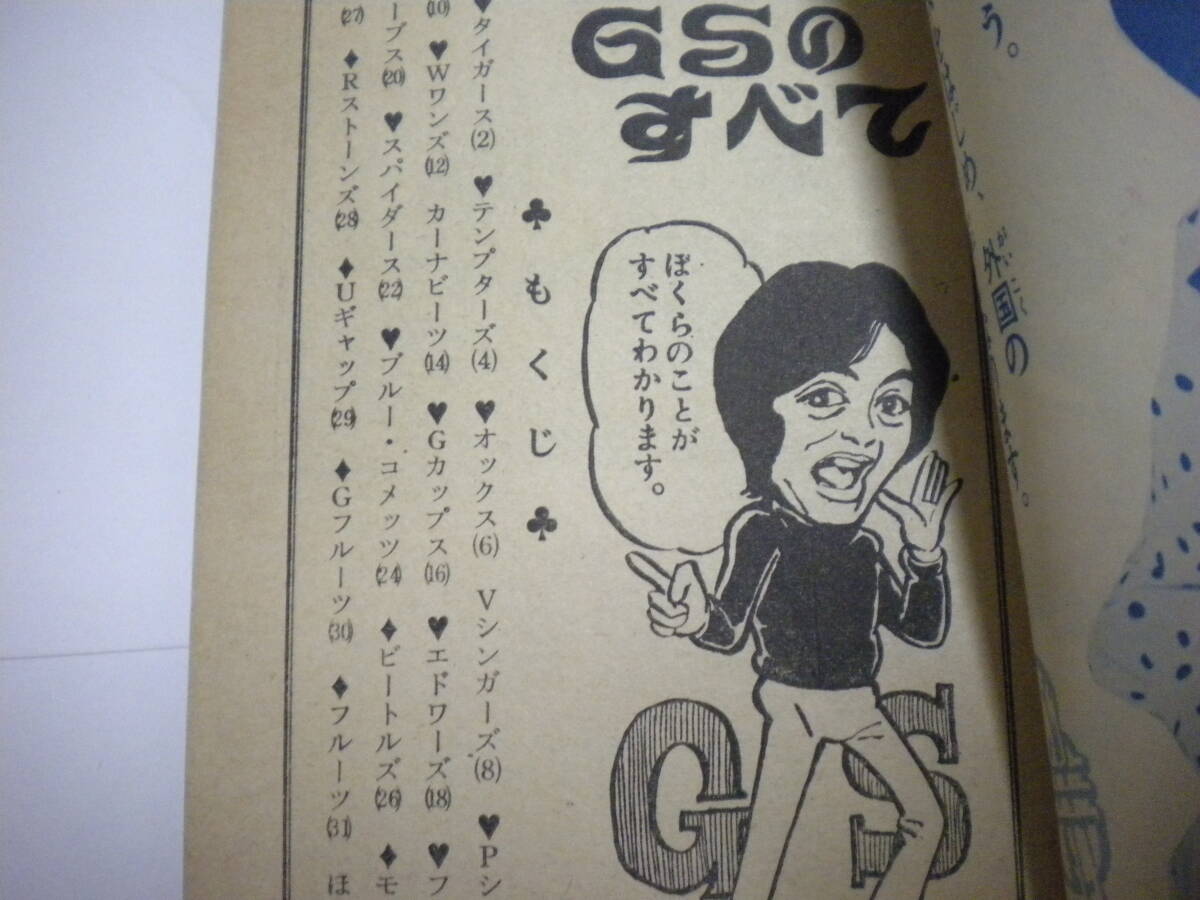 う。
はじめ、
外国の
がいこく
GSの
すべて
ぼくらのことが
すべてわかります。
GS
♣もくじ♣
♥タイガース(2) ♥テンプターズ(4) ♥オックス(6) Vシンガーズ(8) ♥Pシ
(10) ♥Wワンズ(12) カーナビーツ(14) ♥Gカップス(16) ♥エドワーズ(18) ♥フ
ープス(20) ♥スパイダース(22) ♥ブルー・コメッツ(24) ♦ビートルズ(26) ♦モ
(27) ♦Rストーンズ(28) ♦Uギャップ(29) ♦Gフルーツ(30) ♦フルーツ(31) ほ